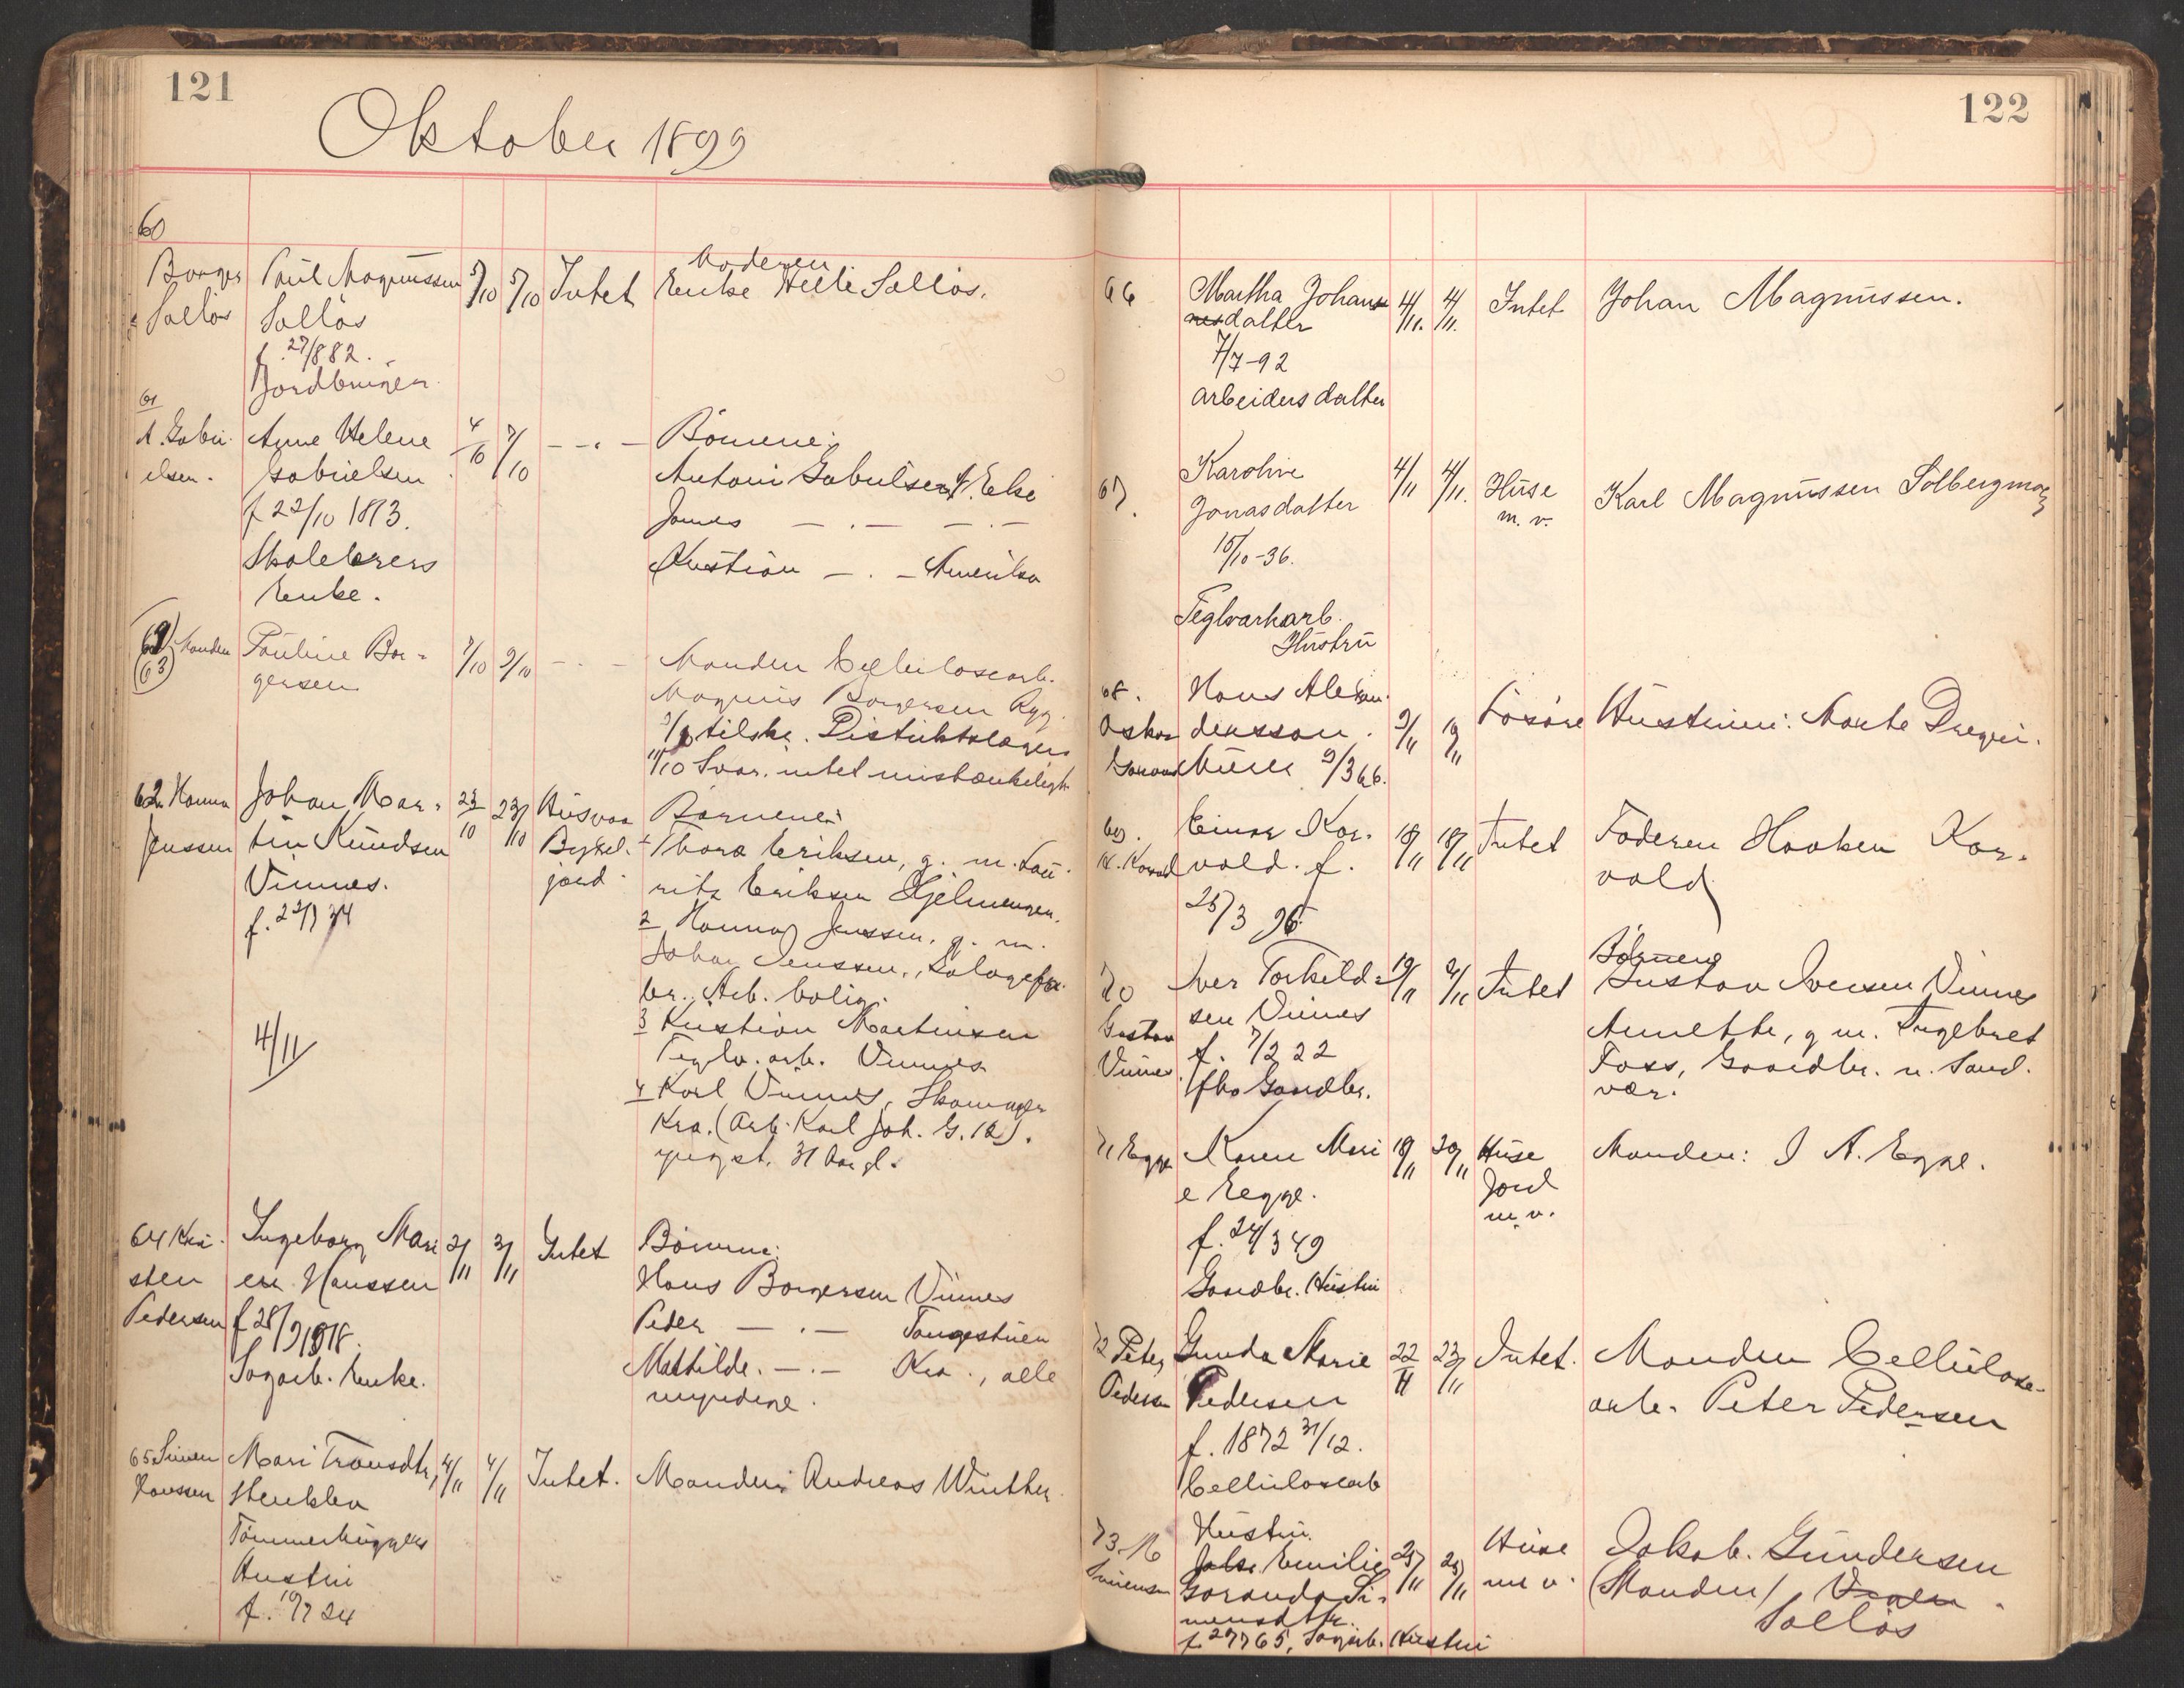 121
Oktober 1899
60
Borger
Solløs
Paul Magnussen
Solløs
f. 27/8 82.
Jordbruger
5/10 5/10 Intet
Moderen
Enke Helle Solløs.
61
A. Gabri-
elsen.
Anne Helene
Gabrielsen
f 22/10 1813.
Skolelærers
Enke.
4/10 7/10 - " -
Børnene:
Antoni Gabrielsen, Eke
James - . - - . -
Kristian - . - Amerika
63
Manden
Pauline Bor-
gersen
7/10 9/10 - " -
Manden Cellulosearb.
Magnus Borgersen Ryg.
9/10 tilskr. Distriktslægen
11/10 Svar. intet mistænkeligt
62. Hanna
Jenssen
Johan Mar-
tin Knudsen
Vinnes.
f. 22/3 34
4/11
23/10 23/10
Husvær
Byksel-
jord.
Børnene:
1 Thora Eriksen, g. m. Lau-
ritz Eriksen Hjelmengen.
2 Hanna Jenssen, g. m.
Johan Jenssen,
br. Arb. bolig.
3 Kristian Martinsen
Teglv. arb. Vinnes.
4 Karl Vinnes, Skomager
Kra. (Arb. Karl Joh. G. 12).
yngst. 31 Aar gl.
64 Kri-
sten
Pedersen
Ingeborg Mari
en Hanssen
f 28/9 1818.
Sagarb. Enke.
2/11 3/11 Intet
Børnene:
Hans Borgersen Vinnes
Peder - . - Tangestuen
Mathilde. - . - Kra., alle
myndige.
65 Simen
Hanssen
Mari Trondsdtr,
Stenklev
Tømmerhuggers
Hustru
f. 19/7 24
4/11 4/11 Intet.
Manden Andreas Winther.
122
66
Martha Johan
nesdatter
7/7-92
Arbeidersdatter
4/11. 4/11. Intet
Johan Magnussen.
67.
Karoline
Jonasdatter
15/10-36.
Teglværkarb.
Hustru
4/11 4/11. Huse
m. v.
Karl Magnussen Solbergmoen
68.
Oskar
Hans Alexan-
dersson.
9/3 66.
9/11
Løsøre
Hustruen: Marte
69.
H. Korvald
Einar Kor-
vald. f.
25/3 96.
18/11 18/11 Intet
Faderen Haaken Kor-
vald
70
Gustav
Vinnes
Iver Torkild-
sen Vinnes
f. 7/2 22
fhv Gaardbr.
19/11 Intet
Børnene
Gustav Iversen Vinnes
Annette, g m. Ingebret
Foss, Gaardbr. n. Sand-
vær.
71 Egge
Karen Mari
e Eegge.
f. 24/3 49
Gaardbr. Hustru
18/11 20/11 Huse
Jord
m. v.
Manden: I A. Egge.
72 Peter
Pedersen
Gunda Marie
Pedersen
f. 1872 31/12.
Cellulosearb
Hustru.
22/11 23/11 Intet.
Manden Cellulose-
arb. Peter Pedersen
73. M
Simensen
Emilie
Goranda Si-
mensdtr.
f 29/7 65, Sagarb. Hustru
25/11 25/11 Huse
m v.
Jakob. Gundersen
(Manden)
Solløs